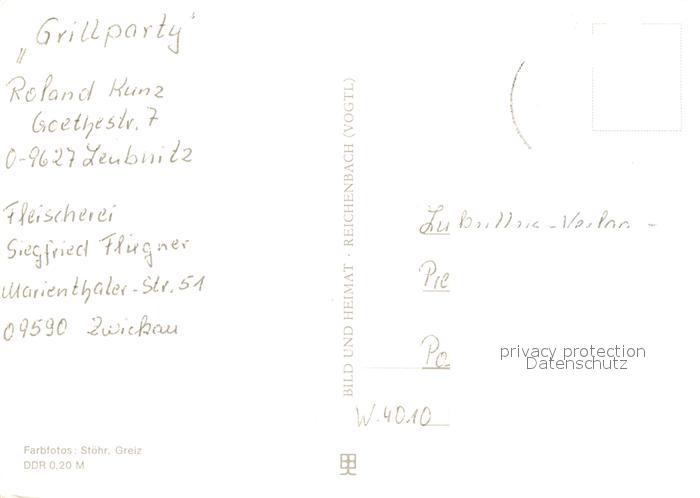 „Grillparty"
Roland Kunz
Goethestr. 7
O-9627 Leubnitz
Fleischerei
Siegfried Fliegner
Marienthaler-Str. 51
09590 Zwickau
Farbfotos: Stöhr, Greiz
DDR 0,20 M
BILD UND HEIMAT · REICHENBACH (VOGTL)
Pre
Po
W. 4010
privacy protection
Datenschutz